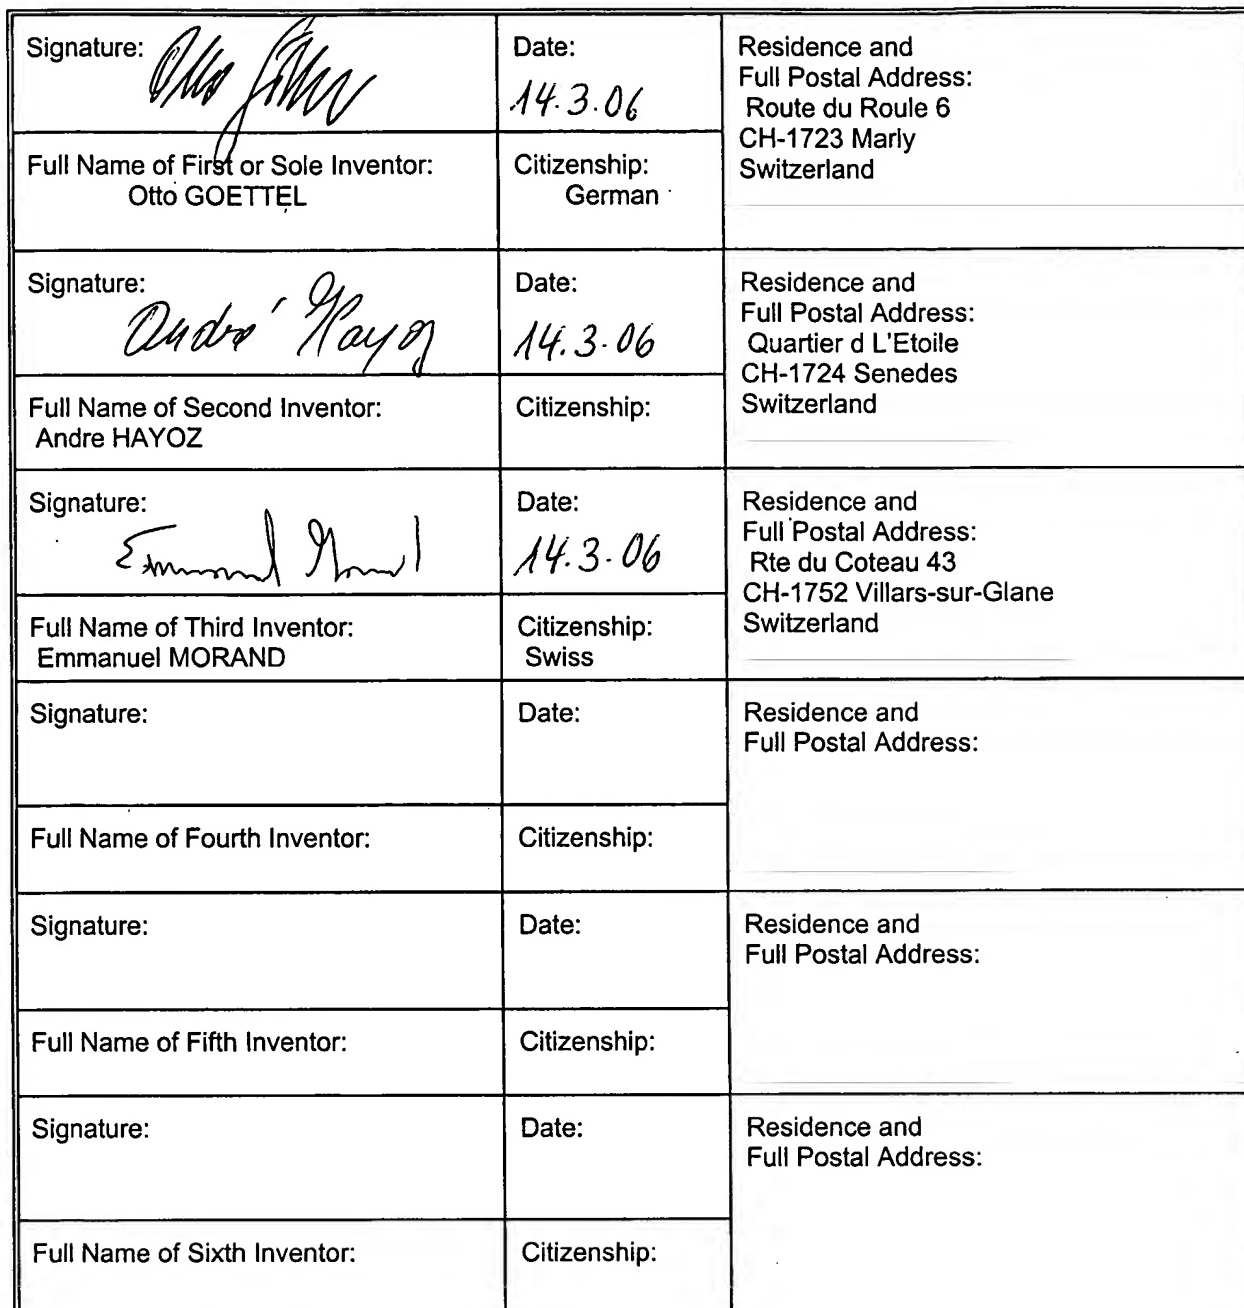 Signature: Otto Göttel
Date:
14.3.06
Residence and
Full Postal Address:
Route du Roule 6
CH-1723 Marly
Switzerland
Full Name of First or Sole Inventor:
Otto GOETTEL
Citizenship:
German
Signature:
André Hayoz
Date:
14.3.06
Residence and
Full Postal Address:
Quartier d L'Etoile
CH-1724 Senedes
Switzerland
Full Name of Second Inventor:
Andre HAYOZ
Citizenship:
Signature:
Emmanuel Morand
Date:
14.3.06
Residence and
Full Postal Address:
Rte du Coteau 43
CH-1752 Villars-sur-Glane
Switzerland
Full Name of Third Inventor:
Emmanuel MORAND
Citizenship:
Swiss
Signature:
Date:
Residence and
Full Postal Address:
Full Name of Fourth Inventor:
Citizenship:
Signature:
Date:
Residence and
Full Postal Address:
Full Name of Fifth Inventor:
Citizenship:
Signature:
Date:
Residence and
Full Postal Address:
Full Name of Sixth Inventor:
Citizenship: